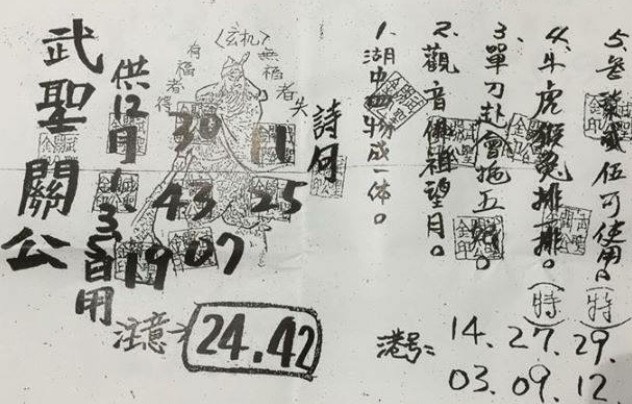 武聖關公
供12月1.3.5日用
〈玄机〉
有福者得
無福者失
30 11
43 25
19 07
注意：24.42
詩句
1. 湖中四物成一体。
2. 觀音佛祖望月。
3. 單刀赴會拖五。
4. 牛虎猴兔排排。(特)
5. 叁柒貳伍可使用。(特)
港号：14. 27. 29.
03. 09. 12.